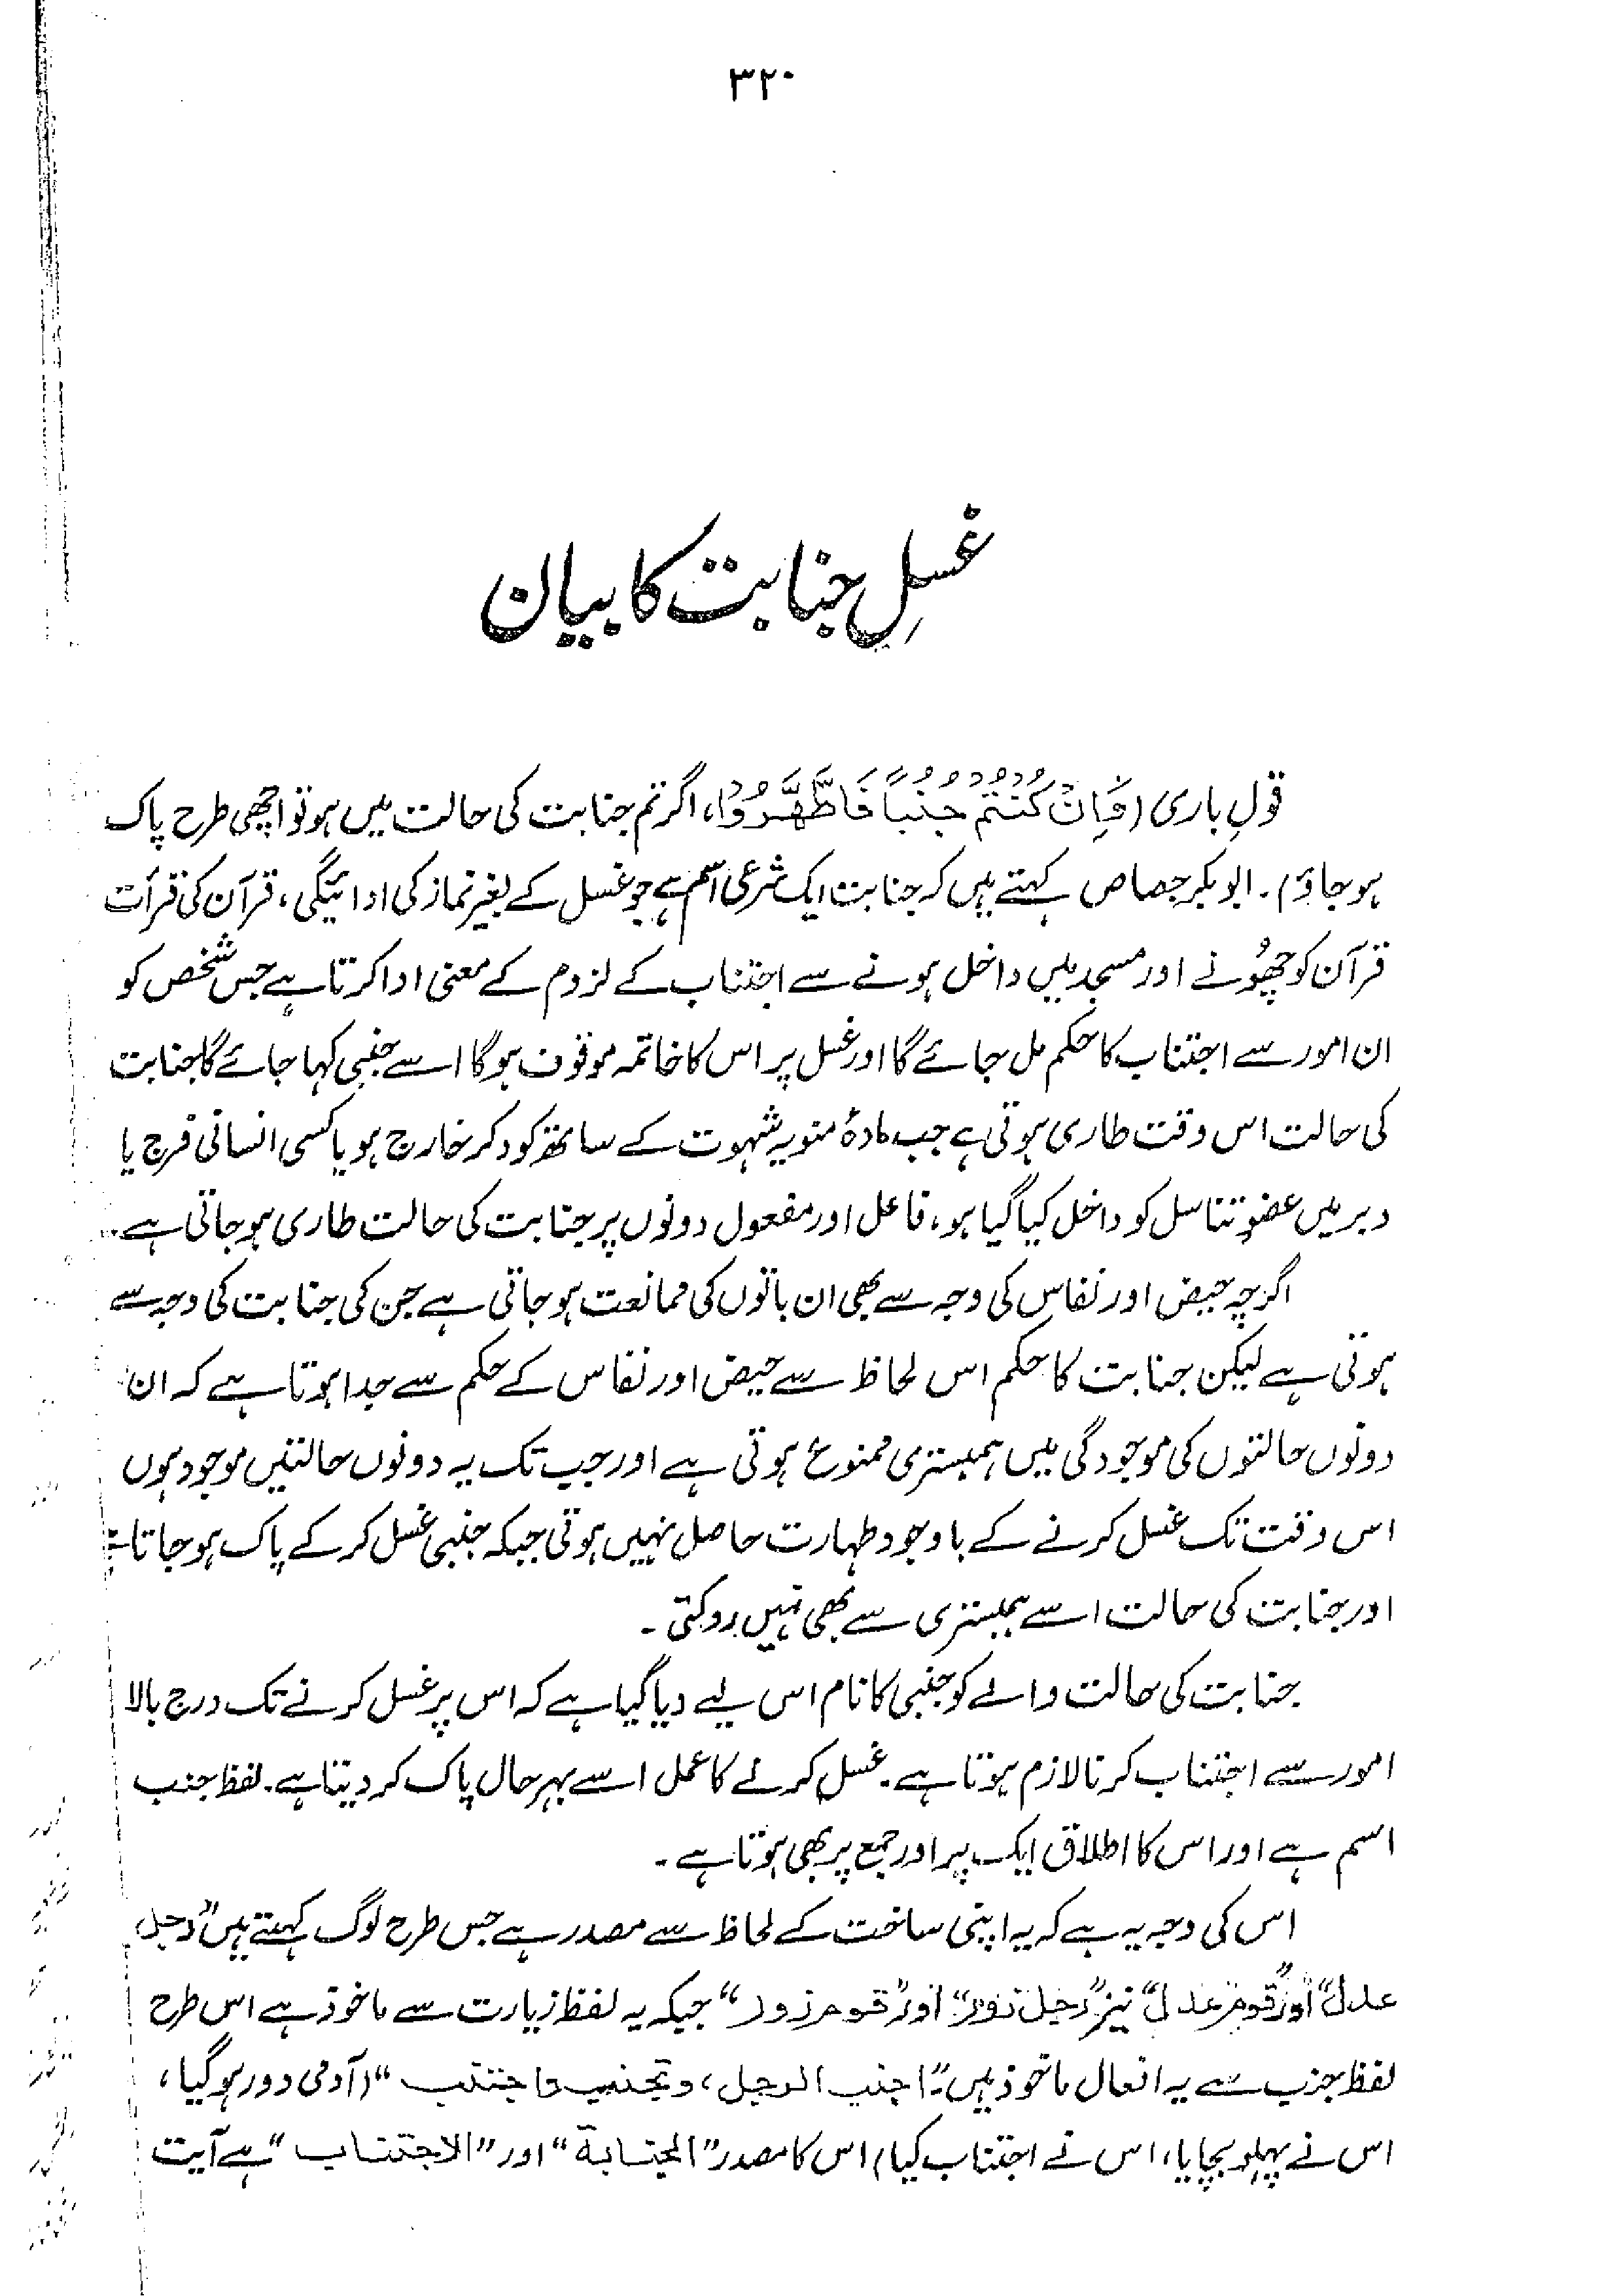 ۳۲۰
غسلِ جنابت کا بیان
قولِ باری (فَاِنْ كُنْتُمْ جُنُبًا فَاطَّهَّرُوْا، اگر تم جنابت کی حالت میں ہو تو اچھی طرح پاک
ہو جاؤ)۔ ابوبکر جصاص کہتے ہیں کہ جنابت ایک شرعی اسم ہے جو غسل کے بغیر نماز کی ادائیگی، قرآن کی قرأت
قرآن کو چھُونے اور مسجد میں داخل ہونے سے اجتناب کے لزوم کے معنی ادا کرتا ہے جس شخص کو
ان امور سے اجتناب کا حکم مل جائے گا اور غسل پر اس کا خاتمہ موقوف ہوگا اسے جنبی کہا جائے گا جنابت
کی حالت اس وقت طاری ہوتی ہے جب مادۂ منویہ شہوت کے ساتھ کود کر خارج ہو یا کسی انسانی فرج یا
دبر میں عضوِ تناسل کو داخل کیا گیا ہو، فاعل اور مفعول دونوں پر جنابت کی حالت طاری ہو جاتی ہے۔
اگرچہ حیض اور نفاس کی وجہ سے بھی ان باتوں کی ممانعت ہو جاتی ہے جن کی جنابت کی وجہ سے
ہوتی ہے لیکن جنابت کا حکم اس لحاظ سے حیض اور نفاس کے حکم سے جدا ہوتا ہے کہ ان
دونوں حالتوں کی موجودگی میں ہمبستری ممنوع ہوتی ہے اور جب تک یہ دونوں حالتیں موجود ہوں
اس وقت تک غسل کرنے کے باوجود طہارت حاصل نہیں ہوتی جبکہ جنبی غسل کر کے پاک ہو جاتا ہے
اور جنابت کی حالت اسے ہمبستری سے بھی نہیں روکتی۔
جنابت کی حالت والے کو جنبی کا نام اس لیے دیا گیا ہے کہ اس پر غسل کرنے تک درج بالا
امور سے اجتناب کرنا لازم ہوتا ہے۔ غسل کرنے کا عمل اسے بہرحال پاک کر دیتا ہے۔ لفظ جنب
اسم ہے اور اس کا اطلاق ایک پر اور جمع پر بھی ہوتا ہے۔
اس کی وجہ یہ ہے کہ یہ اپنی ساخت کے لحاظ سے مصدر ہے جس طرح لوگ کہتے ہیں "رجل
عدل" اور "قوم عدل" نیز "رجل زور" اور "قوم زور" جبکہ یہ لفظ زیارت سے ماخوذ ہے اس طرح
لفظ جنب سے یہ افعال ماخوذ ہیں "اجنب الرجل، وتجنب واجتنب" (آدمی دور ہو گیا،
اس نے پہلو بچایا، اس نے اجتناب کیا) اس کا مصدر "الجنابة" اور "الاجتناب" ہے آیت